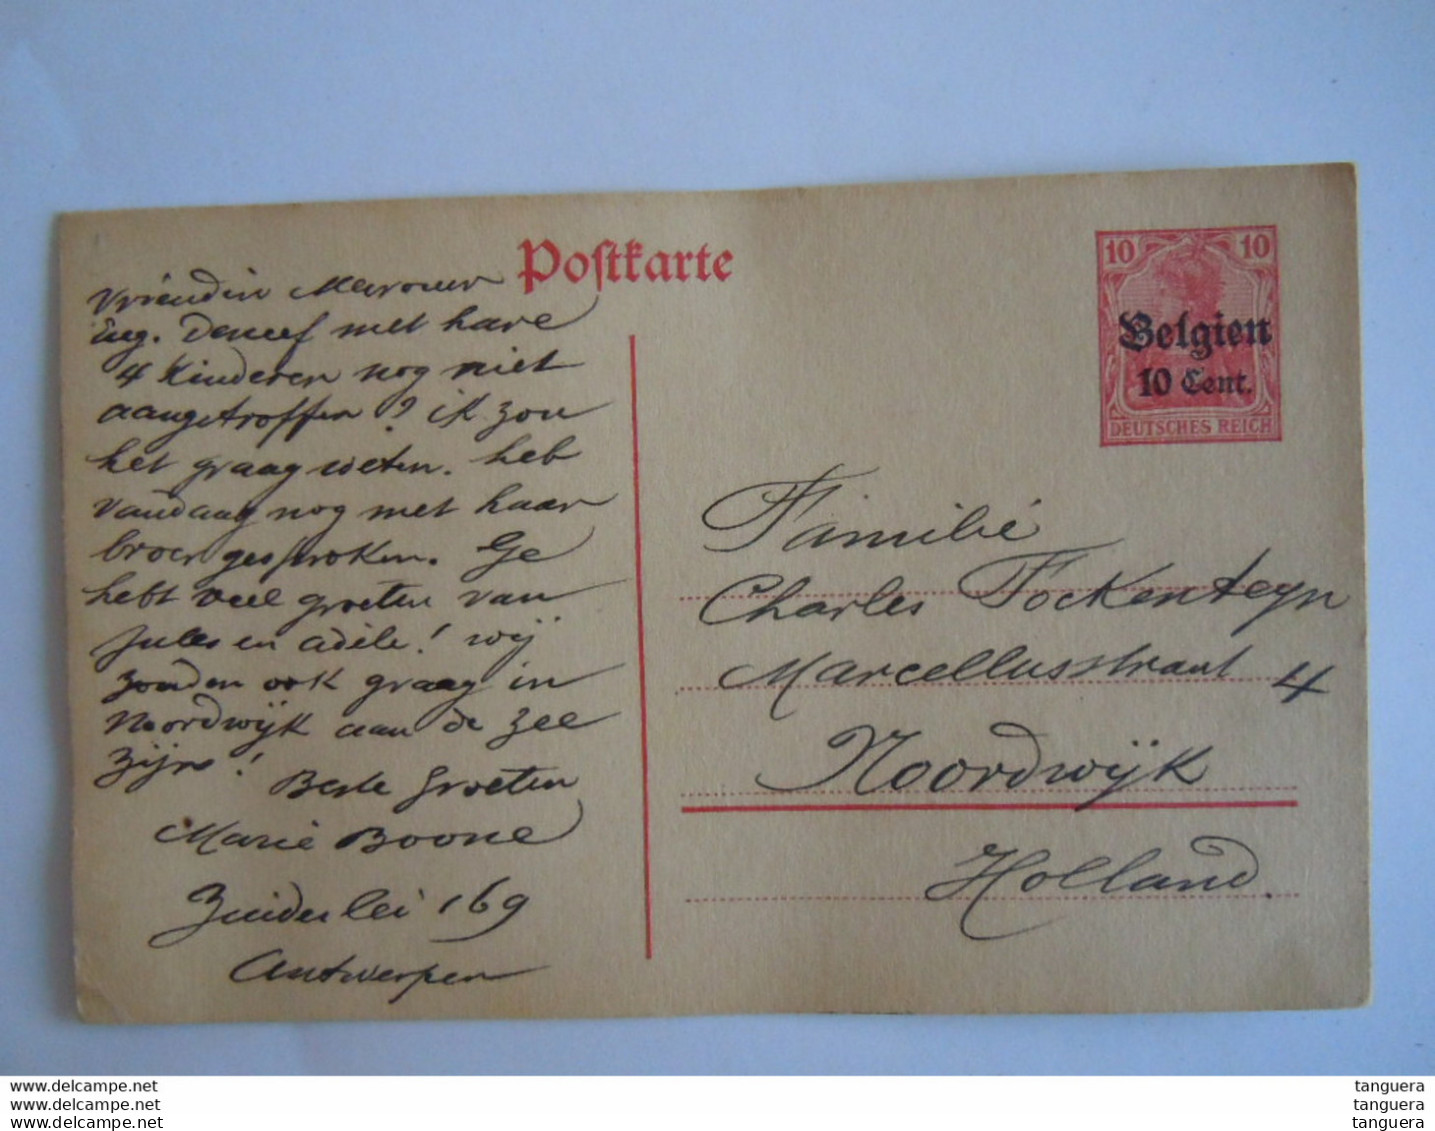 Postkarte
10 10
Belgien
10 Cent.
DEUTSCHES REICH
Vriendin
Eug. Deneef met hare
4 Kinderen nog niet
aangetroffen? ik zou
het graag weten. heb
vandaag nog met haar
broer gesproken. Ge
hebt veel groeten van
Jules en Adèle! wij
zouden ook graag in
Noordwijk aan de zee
zijn!
Beste Groeten
Marie Boone
Zuiderlei 169
Antwerpen
Familie
Charles Fockenteyn
Marcellusstraat 4
Noordwijk
Holland
www.delcampe.net
www.delcampe.net
www.delcampe.net
tanguera
tanguera
tanguera